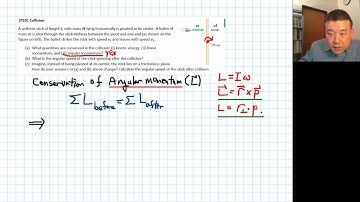 [P10] Collision
A uniform stick of length L with mass M lying horizontally is pivoted at its center. A bullet of
mass m is shot through the stick midway between the pivot and one end (as shown in the
figure on left). The bullet strikes the stick with speed v₁ and leaves with speed v₂.
(a) What quantities are conserved in the collision: (i) kinetic energy, (ii) linear
momentum, and (iii) angular momentum? yes
(b) What is the angular speed of the stick spinning after the collision?
(c) Imagine, instead of being pivoted at its center, the stick lies on a frictionless plane.
How do your answers to (a) and (b) above change? Calculate the angular speed of the stick after collision.
Conservation of Angular Momentum (L⃗)
ΣL before = ΣL after
⇒
L = Iω
L⃗ = r⃗ × p⃗
L = r⊥·p.